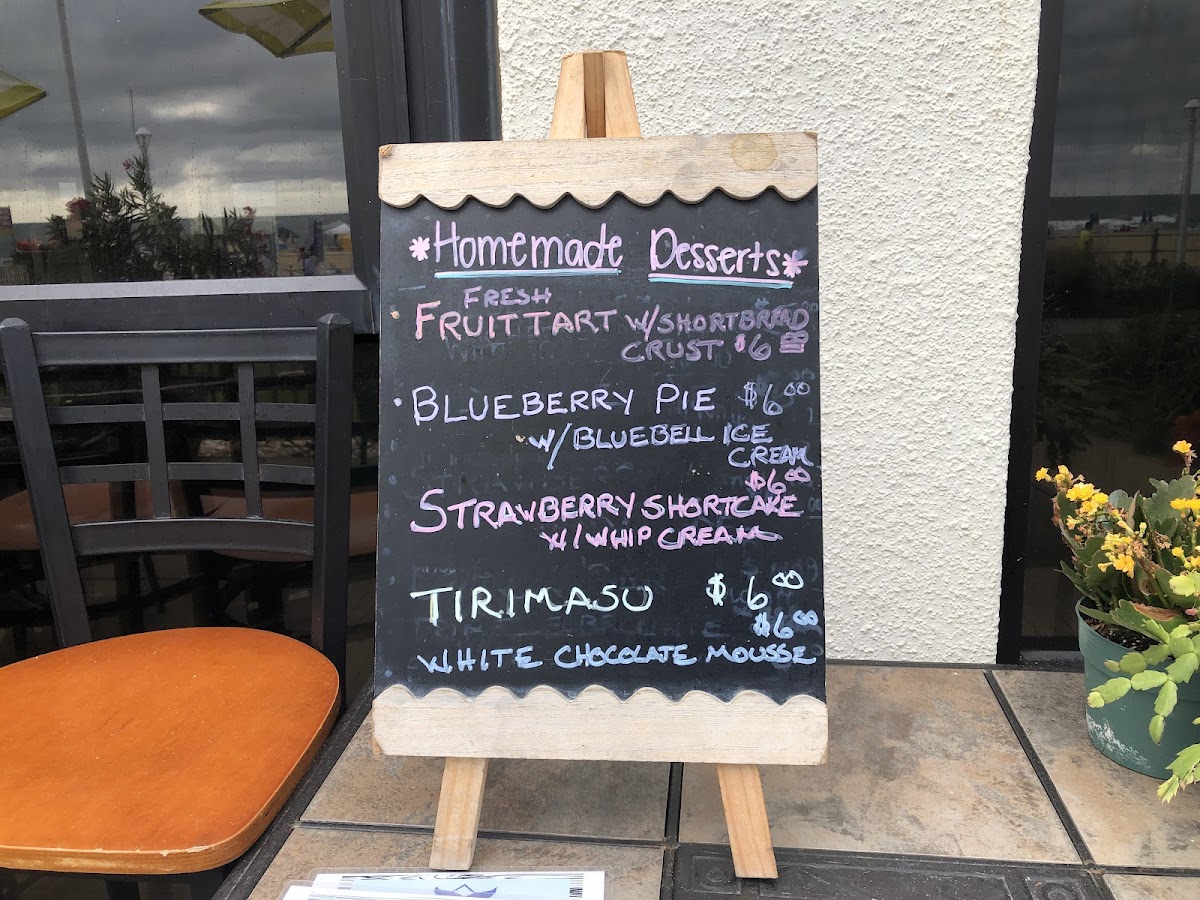 *Homemade Desserts*
FRESH
FRUIT TART W/SHORTBREAD
CRUST $6 00
• BLUEBERRY PIE $6 00
W/BLUEBELL ICE
CREAM
$6 00
STRAWBERRY SHORTCAKE
W/WHIP CREAM
TIRIMASU $6 00
$6 00
WHITE CHOCOLATE MOUSSE